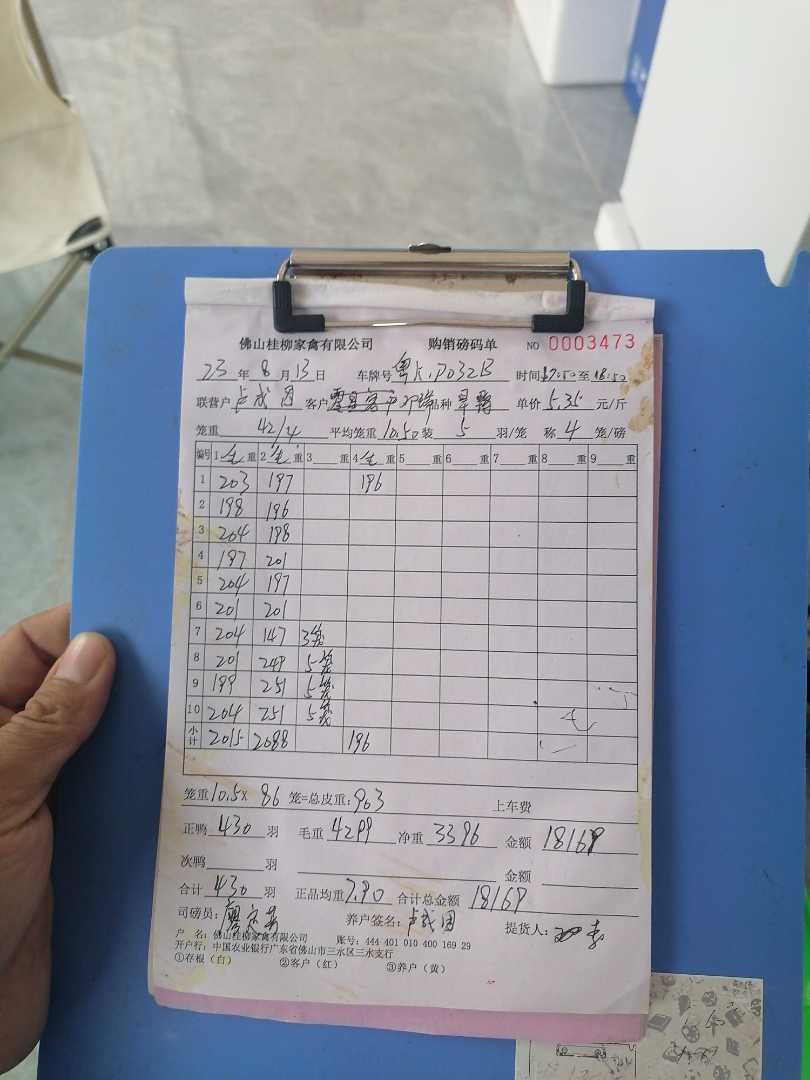 佛山桂柳家禽有限公司 购销磅码单 NO 0003473
23年8月13日 车牌号 粤K.P032B 时间17:50至18:50
联营户 卢成 客户 品种 单价5.35元/斤
笼重42/4 平均笼重10.50装5羽/笼 称4笼/磅
编号 1毛重 2毛重 3重 4毛重 5重 6重 7重 8重 9重
1 203 197 196
2 198 196
3 204 198
4 197 201
5 204 197
6 201 201
7 204 147 3笼
8 201 249 5笼
9 199 251 5笼
10 204 251 5笼
小计 2015 2088 196
笼重10.5x86笼=总皮重:903 上车费
正鸭430羽 毛重4299 净重3396 金额18169
次鸭 羽 金额
合计430羽 正品均重7.90 合计总金额18169
司磅员: 养户签名:卢成 提货人:
户 名:佛山桂柳家禽有限公司 账号:444 401 010 400 169 29
开户行:中国农业银行广东省佛山市三水区三水支行
①存根(白) ②客户(红) ③养户(黄)